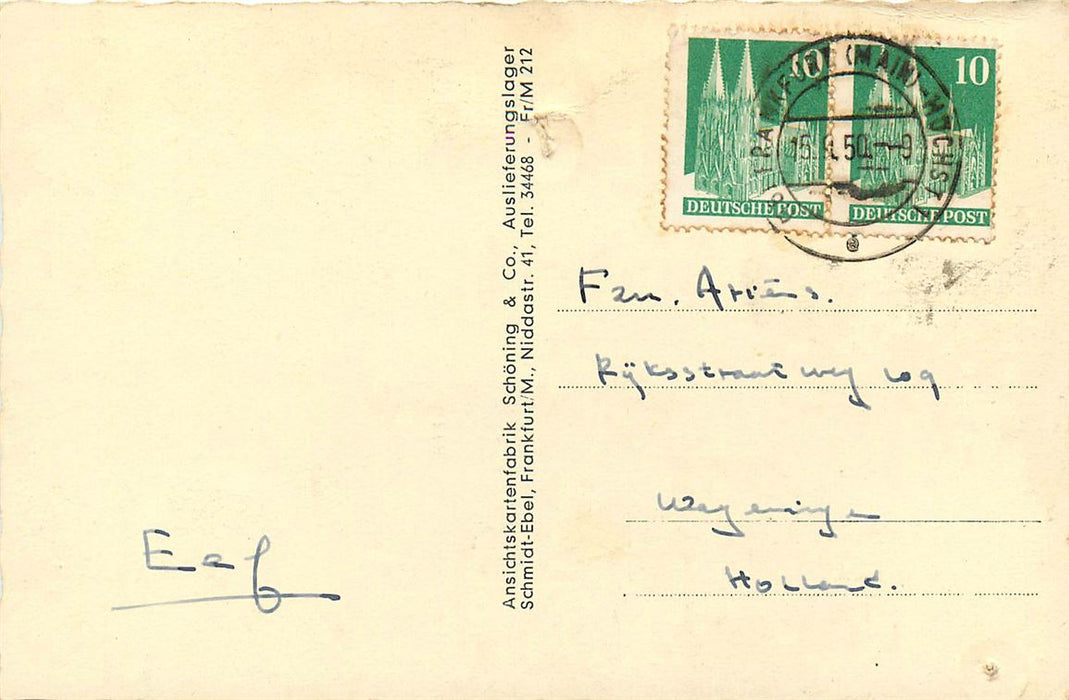 Ansichtskartenfabrik Schöning & Co., Auslieferungslager
Schmidt-Ebel, Frankfurt/M., Niddastr. 41, Tel. 34468 - Fr/M 212
10
DEUTSCHE POST
10
DEUTSCHE POST
FRANKFURT (MAIN)-HÖCHST
50
Fam. Ariëns.
Rijksstraatweg 109
Wageningen
Holland.
Eef